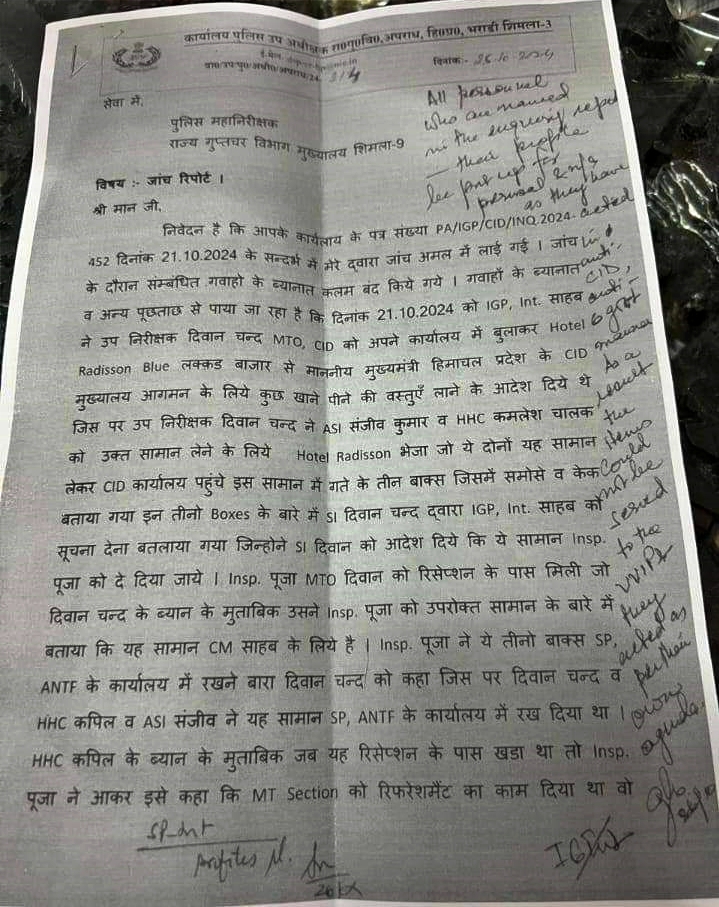 कार्यालय पुलिस उप अधीक्षक रा०गु०वि०,अपराध, हि०प्र०, भराडी शिमला-3
दिनांक:- 26-10-2024
सेवा में,
पुलिस महानिरीक्षक
राज्य गुप्तचर विभाग मुख्यालय शिमला-9
विषय :- जांच रिपोर्ट ।
श्री मान जी,
निवेदन है कि आपके कार्यालय के पत्र संख्या PA/IGP/CID/INQ.2024.
452 दिनांक 21.10.2024 के सन्दर्भ में मेरे द्वारा जांच अमल में लाई गई । जांच
के दौरान सम्बंधित गवाहो के ब्यानात कलम बंद किये गये । गवाहों के ब्यानात
व अन्य पूछताछ से पाया जा रहा है कि दिनांक 21.10.2024 को IGP, Int. साहब
ने उप निरीक्षक दिवान चन्द MTO, CID को अपने कार्यालय में बुलाकर Hotel
Radisson Blue लक्कड बाजार से माननीय मुख्यमंत्री हिमाचल प्रदेश के CID
मुख्यालय आगमन के लिये कुछ खाने पीने की वस्तुएँ लाने के आदेश दिये थे
जिस पर उप निरीक्षक दिवान चन्द ने ASI संजीव कुमार व HHC कमलेश चालक
को उक्त सामान लेने के लिये Hotel Radisson भेजा जो ये दोनों यह सामान
लेकर CID कार्यालय पहुंचे इस सामान में गते के तीन बाक्स जिसमें समोसे व केक
बताया गया इन तीनो Boxes के बारे में SI दिवान चन्द द्वारा IGP, Int. साहब को
सूचना देना बतलाया गया जिन्होने SI दिवान को आदेश दिये कि ये सामान Insp.
पूजा को दे दिया जाये । Insp. पूजा MTO दिवान को रिसेप्शन के पास मिली जो
दिवान चन्द के ब्यान के मुताबिक उसने Insp. पूजा को उपरोक्त सामान के बारे में
बताया कि यह सामान CM साहब के लिये है । Insp. पूजा ने ये तीनो बाक्स SP,
ANTF के कार्यालय में रखने बारा दिवान चन्द को कहा जिस पर दिवान चन्द व
HHC कपिल व ASI संजीव ने यह सामान SP, ANTF के कार्यालय में रख दिया था ।
HHC कपिल के ब्यान के मुताबिक जब यह रिसेप्शन के पास खडा था तो Insp.
पूजा ने आकर इसे कहा कि MT Section को रिफरेशमैंट का काम दिया था वो
All personnel
who are named
in the enquiry report
— their profile
be put up for
perusal & n/a
as they have
acted
in
anti-
CID,
anti-
govt
manner
As a
result
the
items
could
not be
served
to the
VVIPs
they
acted as
per their
own
agenda.